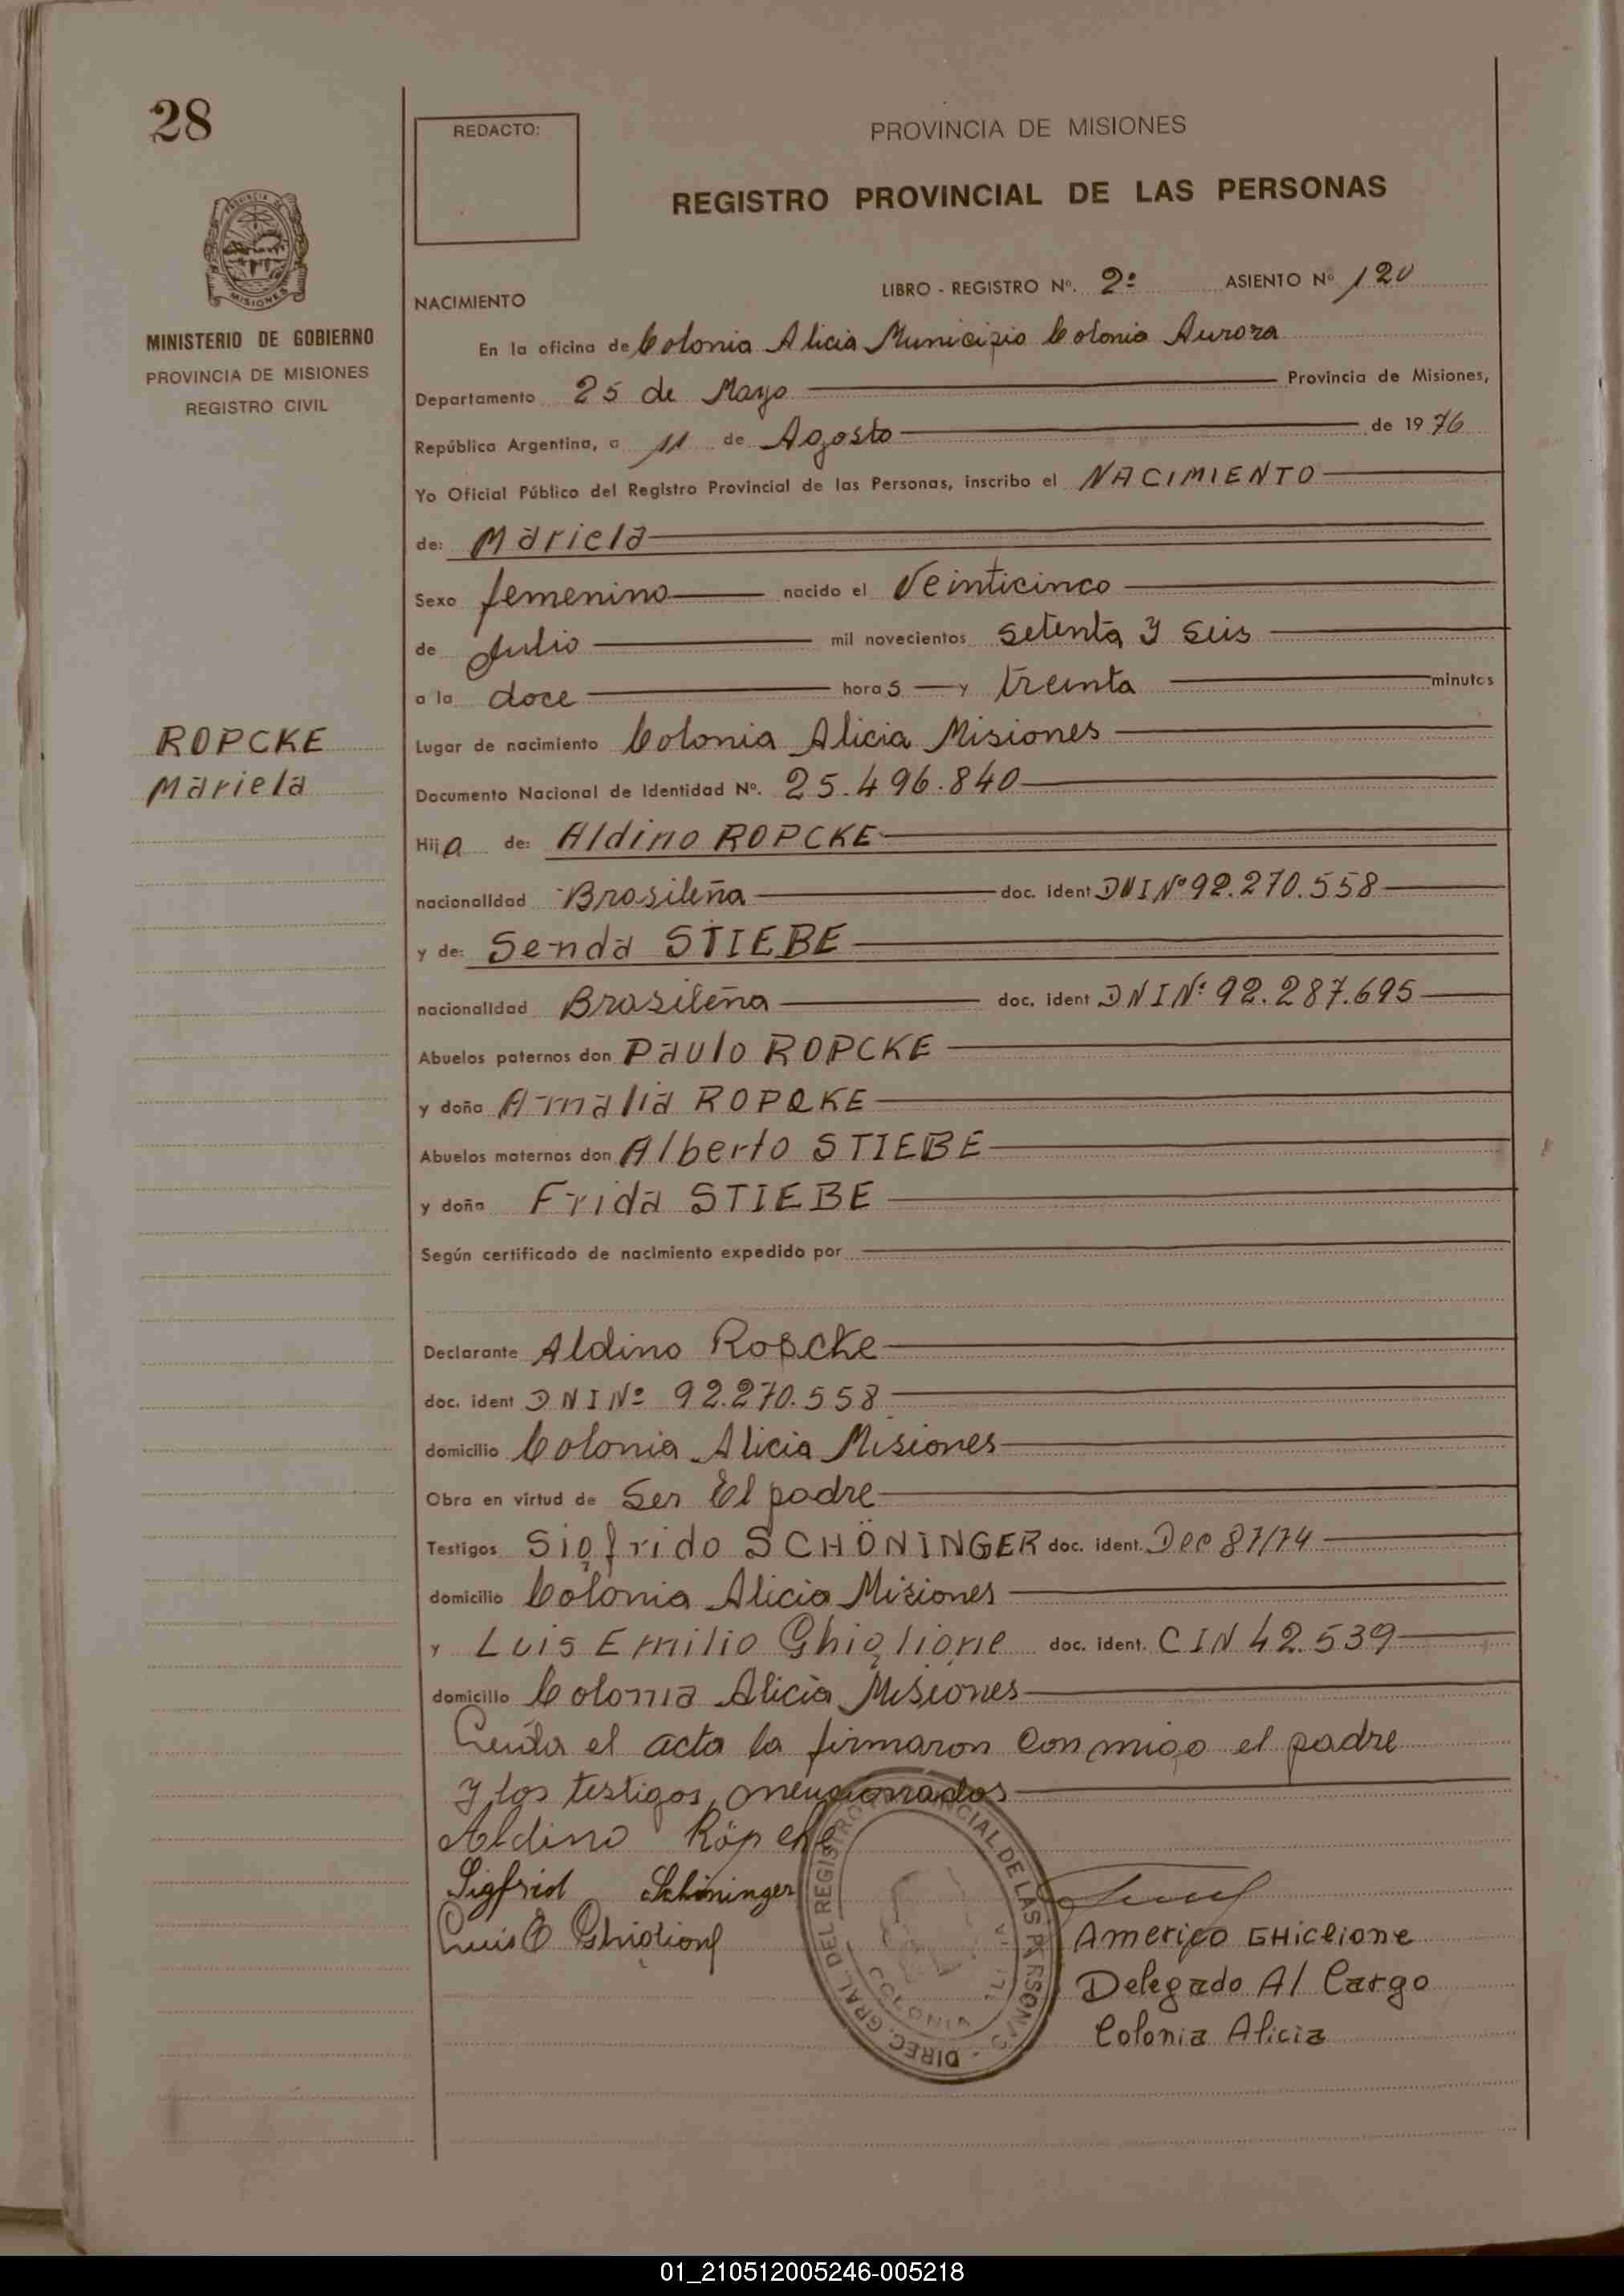 28
REDACTO:
PROVINCIA DE MISIONES
REGISTRO PROVINCIAL DE LAS PERSONAS
MISIONES
MINISTERIO DE GOBIERNO
PROVINCIA DE MISIONES
REGISTRO CIVIL
NACIMIENTO
LIBRO - REGISTRO Nº. 2º ASIENTO Nº 120
En la oficina de Colonia Alicia Municipio Colonia Aurora
Departamento 25 de Mayo Provincia de Misiones,
República Argentina, a 11 de Agosto de 1976
Yo Oficial Público del Registro Provincial de las Personas, inscribo el NACIMIENTO
de: Mariela
Sexo femenino nacido el Veinticinco
de Julio mil novecientos setenta y seis
a la doce horas y treinta minutos
ROPCKE
Mariela
Lugar de nacimiento Colonia Alicia Misiones
Documento Nacional de Identidad Nº. 25.496.840
Hija de: Aldino ROPCKE
nacionalidad Brasileña doc. ident DNI Nº 92.270.558
y de: Senda STIEBE
nacionalidad Brasileña doc. ident DNI Nº 92.287.695
Abuelos paternos don Paulo ROPCKE
y doña Amalia ROPCKE
Abuelos maternos don Alberto STIEBE
y doña Frida STIEBE
Según certificado de nacimiento expedido por
Declarante Aldino Ropcke
doc. ident DNI Nº 92.270.558
domicilio Colonia Alicia Misiones
Obra en virtud de Ser El padre
Testigos Sigfrido SCHÖNINGER doc. ident. Dec 87/74
domicilio Colonia Alicia Misiones
y Luis Emilio Ghiglione doc. ident. CIN 42.539
domicilio Colonia Alicia Misiones
Leída el acta la firmaron conmigo el padre
y los testigos, mencionados
Aldino Röpcke
Sigfrid Schöninger
Luis E Ghiglione
DIREC. GRAL. DEL REGISTRO PROVINCIAL DE LAS PERSONAS
COLONIA
Americo GHiglione
Delegado Al Cargo
Colonia Alicia
01_210512005246-005218